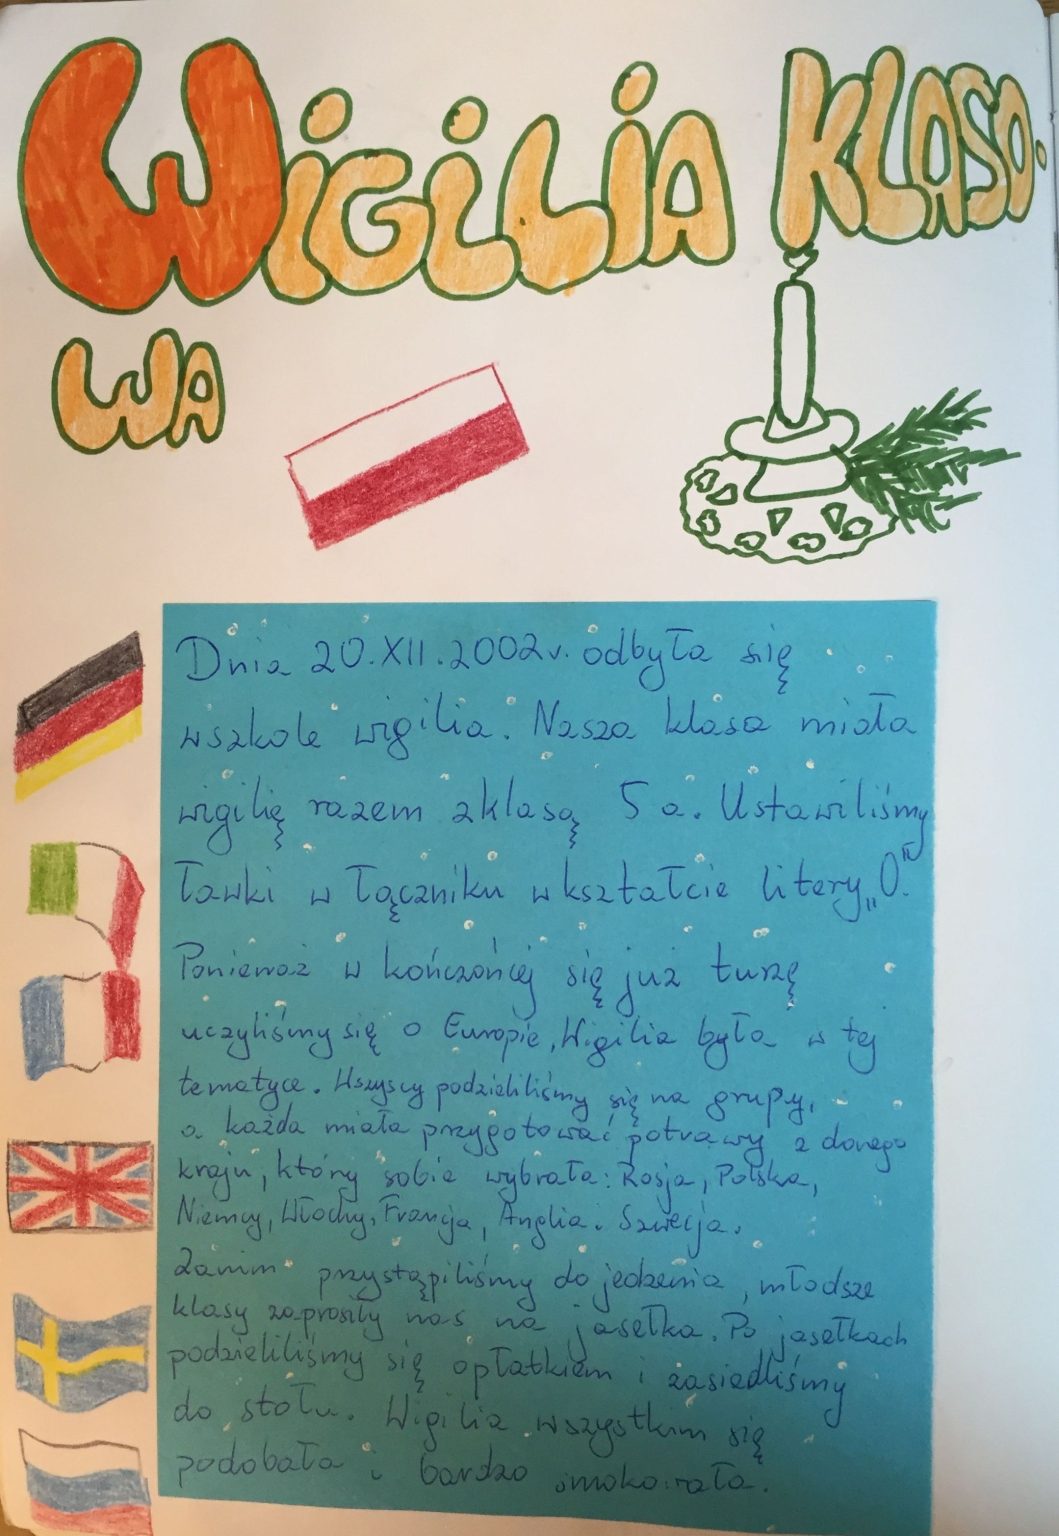 WIGILIA KLASO.
WA
Dnia 20.XII.2002r. odbyła się
w szkole wigilia. Nasza klasa miała
wigilię razem z klasą 5 a. Ustawiliśmy
ławki w łączniku w kształcie litery „O."
Ponieważ w kończącej się już turze
uczyliśmy się o Europie, Wigilia była w tej
tematyce. Wszyscy podzieliliśmy się na grupy,
a każda miała przygotować potrawy z danego
kraju, który sobie wybrała: Rosja, Polska,
Niemcy, Włochy, Francja, Anglia i Szwecja.
Zanim przystąpiliśmy do jedzenia, młodsze
klasy zaprosiły nas na jasełka. Po jasełkach
podzieliliśmy się opłatkiem i zasiedliśmy
do stołu. Wigilia wszystkim się
podobała i bardzo smakowała.